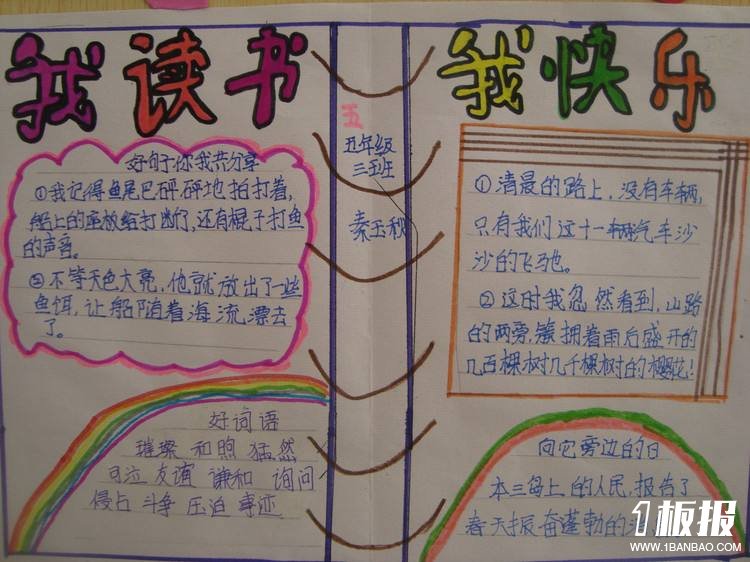 我读书
好句子你我共分享
①我记得鱼尾巴砰砰地拍打着,
船上的座板给打断了,还有棍子打鱼
的声音。
②不等天色大亮,他就放出了一些
鱼饵,让船随着海流漂去
了。
好词语
璀璨 和煦 猛然
友谊 谦和 询问
侵占 斗争 压迫 事迹
五
五年级
三班
秦玉秋
我快乐
①清晨的路上,没有车辆,
只有我们这十一辆汽车沙
沙的飞驰。
②这时我忽然看到,山路
的两旁,簇拥着雨后盛开的
几百棵树几千棵树的樱花!
向它旁边的日
本三岛上的人民,报告了
春天振奋蓬勃的消
1板报
WWW.1BANBAO.COM